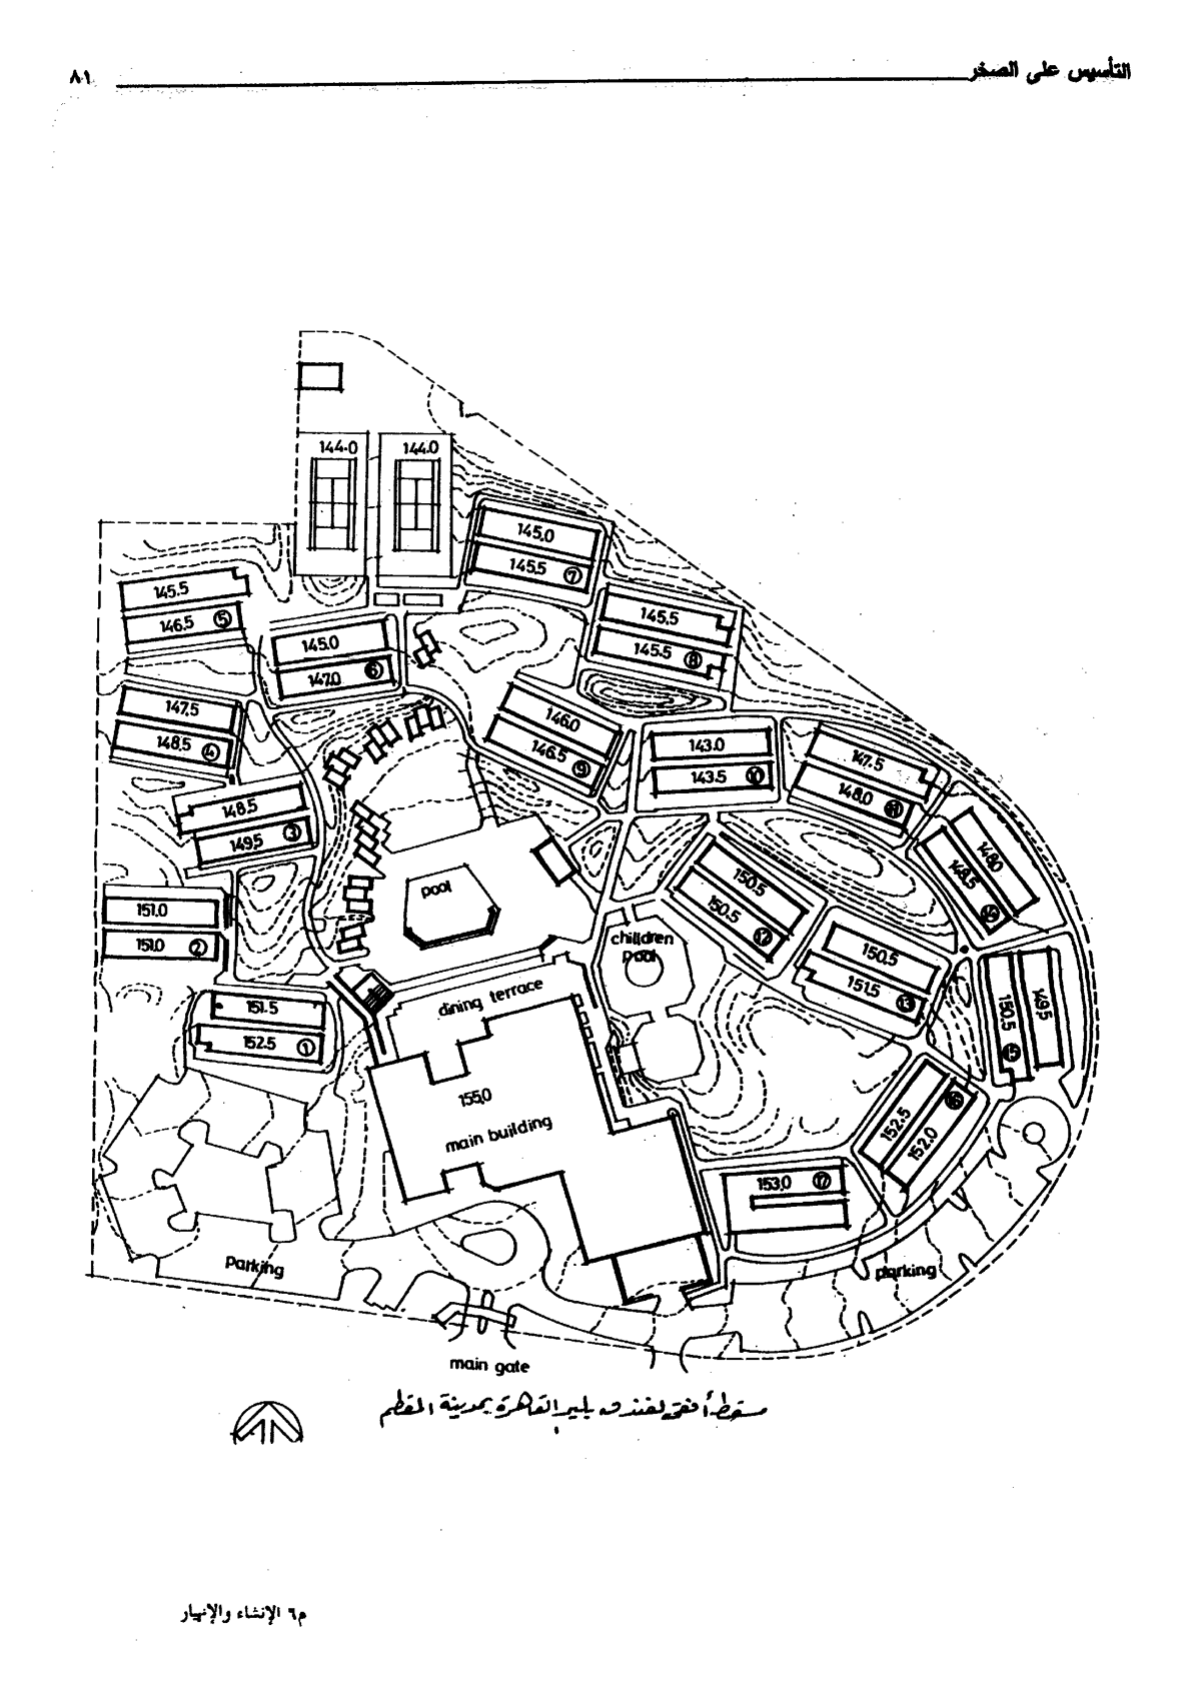 التأسيس على الصخر
٨١
144.0
144.0
145.0
145.5
7
145.5
146.5
5
145.0
147.0
6
145.5
145.5
8
147.5
148.5
4
146.0
146.5
9
143.0
143.5
10
147.5
148.0
11
148.5
149.5
3
148.0
148.5
14
150.5
150.5
12
pool
151.0
151.0
2
children
pool
150.5
151.5
13
dining terrace
151.5
152.5
1
149.5
150.5
15
155.0
main building
152.5
152.0
16
153.0
17
Parking
parking
main gate
مسقط أفقى لفندق بلير القاهرة بمدينة المقطم
م٦ الإنشاء والإنهيار